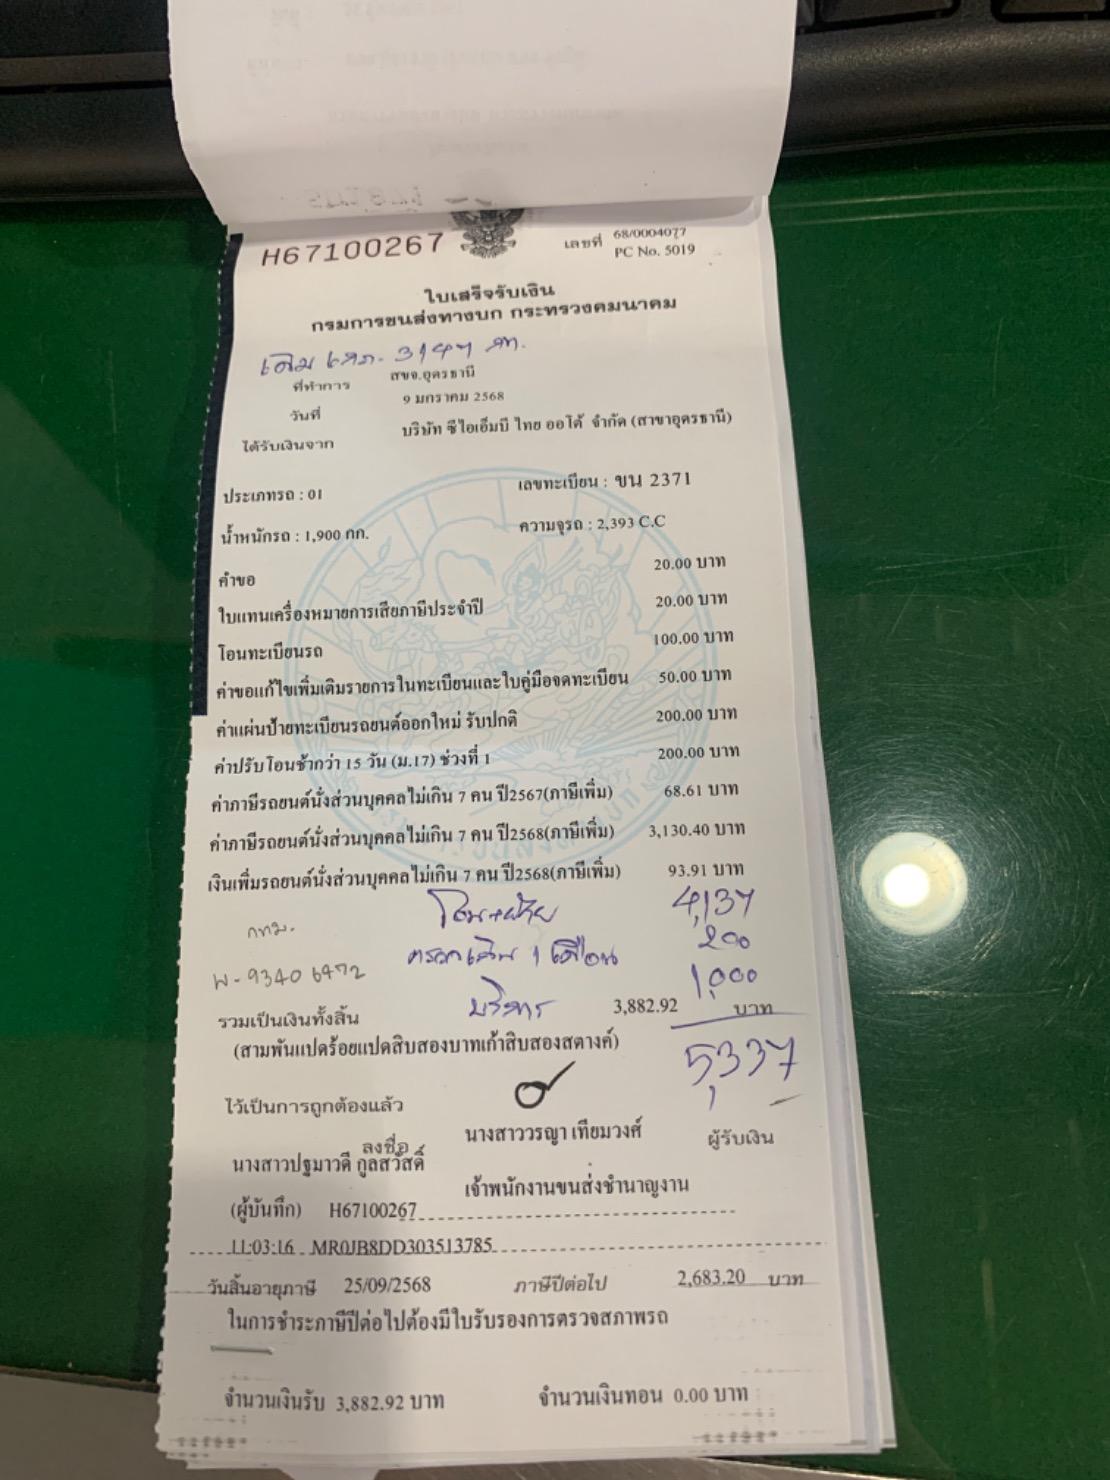 H67100267
เลขที่ 68/0004077
PC No. 5019
ใบเสร็จรับเงิน
กรมการขนส่งทางบก กระทรวงคมนาคม
เดิม 3147
ที่ทำการ สขจ.อุดรธานี
วันที่ 9 มกราคม 2568
ได้รับเงินจาก บริษัท ซีไอเอ็มบี ไทย ออโต้ จำกัด (สาขาอุดรธานี)
ประเภทรถ : 01 เลขทะเบียน : ขน 2371
น้ำหนักรถ : 1,900 กก. ความจุรถ : 2,393 C.C
คำขอ 20.00 บาท
ใบแทนเครื่องหมายการเสียภาษีประจำปี 20.00 บาท
โอนทะเบียนรถ 100.00 บาท
ค่าขอแก้ไขเพิ่มเติมรายการในทะเบียนและใบคู่มือจดทะเบียน 50.00 บาท
ค่าแผ่นป้ายทะเบียนรถยนต์ออกใหม่ รับปกติ 200.00 บาท
ค่าปรับโอนช้ากว่า 15 วัน (ม.17) ช่วงที่ 1 200.00 บาท
ค่าภาษีรถยนต์นั่งส่วนบุคคลไม่เกิน 7 คน ปี2567(ภาษีเพิ่ม) 68.61 บาท
ค่าภาษีรถยนต์นั่งส่วนบุคคลไม่เกิน 7 คน ปี2568(ภาษีเพิ่ม) 3,130.40 บาท
เงินเพิ่มรถยนต์นั่งส่วนบุคคลไม่เกิน 7 คน ปี2568(ภาษีเพิ่ม) 93.91 บาท
โอน+ย้าย 4,137
กทม.
1 เดือน 200
W-9340 6472
บริการ 1,000
รวมเป็นเงินทั้งสิ้น 3,882.92 บาท
(สามพันแปดร้อยแปดสิบสองบาทเก้าสิบสองสตางค์)
5,337
ไว้เป็นการถูกต้องแล้ว
ลงชื่อ นางสาววรญา เทียมวงศ์ ผู้รับเงิน
นางสาวปฐมาวดี กูลสวัสดิ์
เจ้าพนักงานขนส่งชำนาญงาน
(ผู้บันทึก) H67100267
11:03:16 MR0JB8DD303513785
วันสิ้นอายุภาษี 25/09/2568 ภาษีปีต่อไป 2,683.20 บาท
ในการชำระภาษีปีต่อไปต้องมีใบรับรองการตรวจสภาพรถ
จำนวนเงินรับ 3,882.92 บาท จำนวนเงินทอน 0.00 บาท